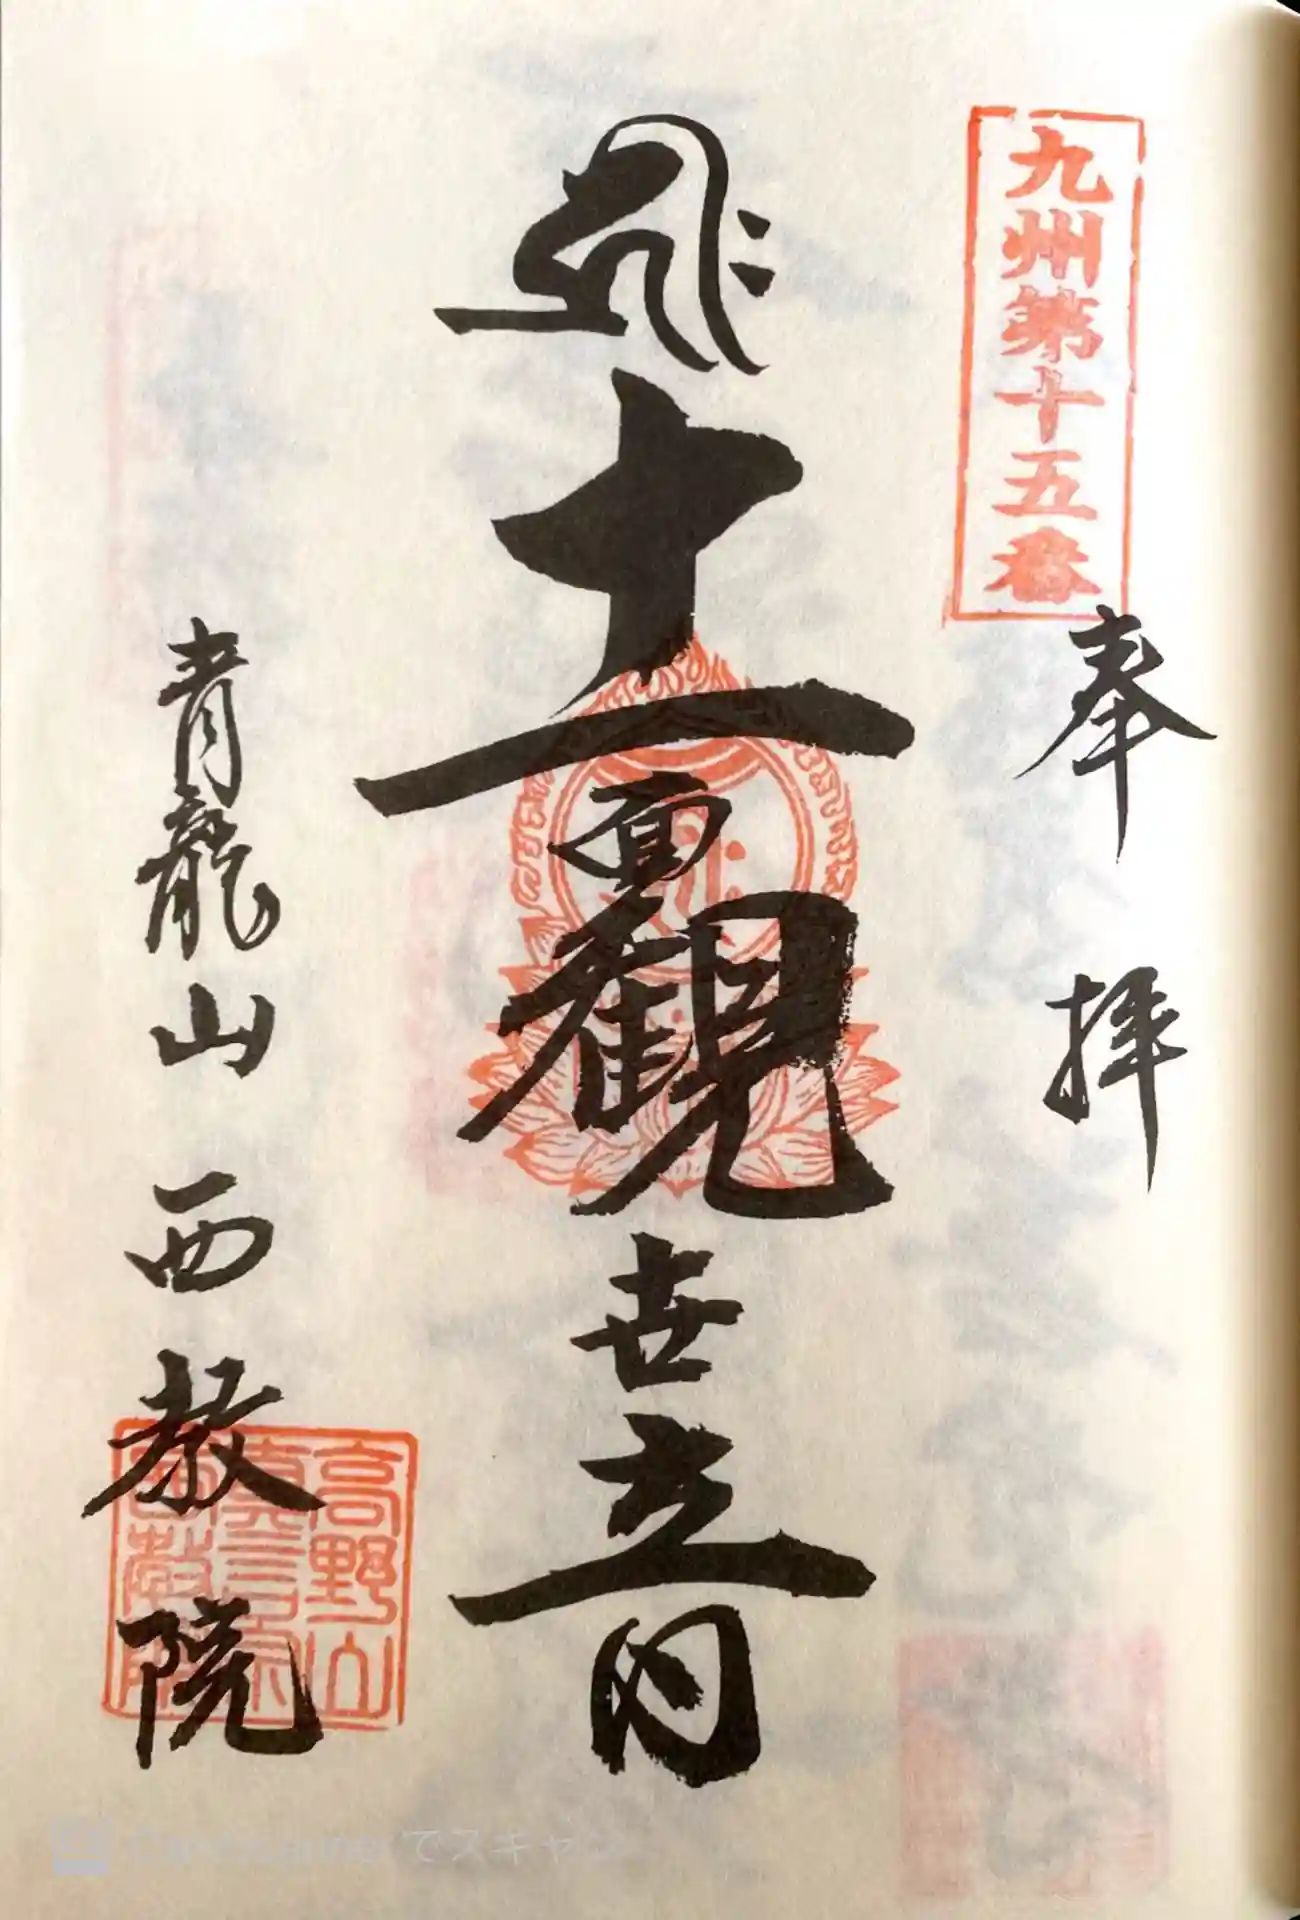 九州第十五番
奉拝
十一面観世音
青龍山 西教院
高野山
真言宗
西教院
でスキャン